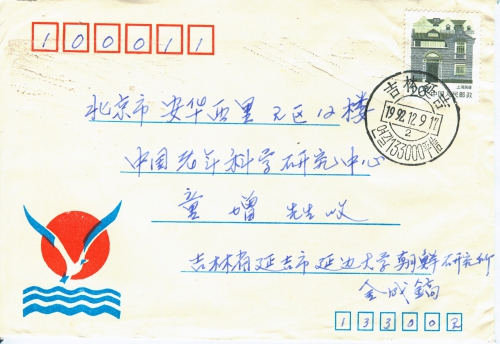 100011
20 中国人民邮政
上海民居
吉林延吉
1992.12.9.17
2
연길133000
北京市安华西里二区12楼
中国老年科学研究中心
童增 先生收
吉林省延吉市延边大学朝鲜研究所
金成镐
133002